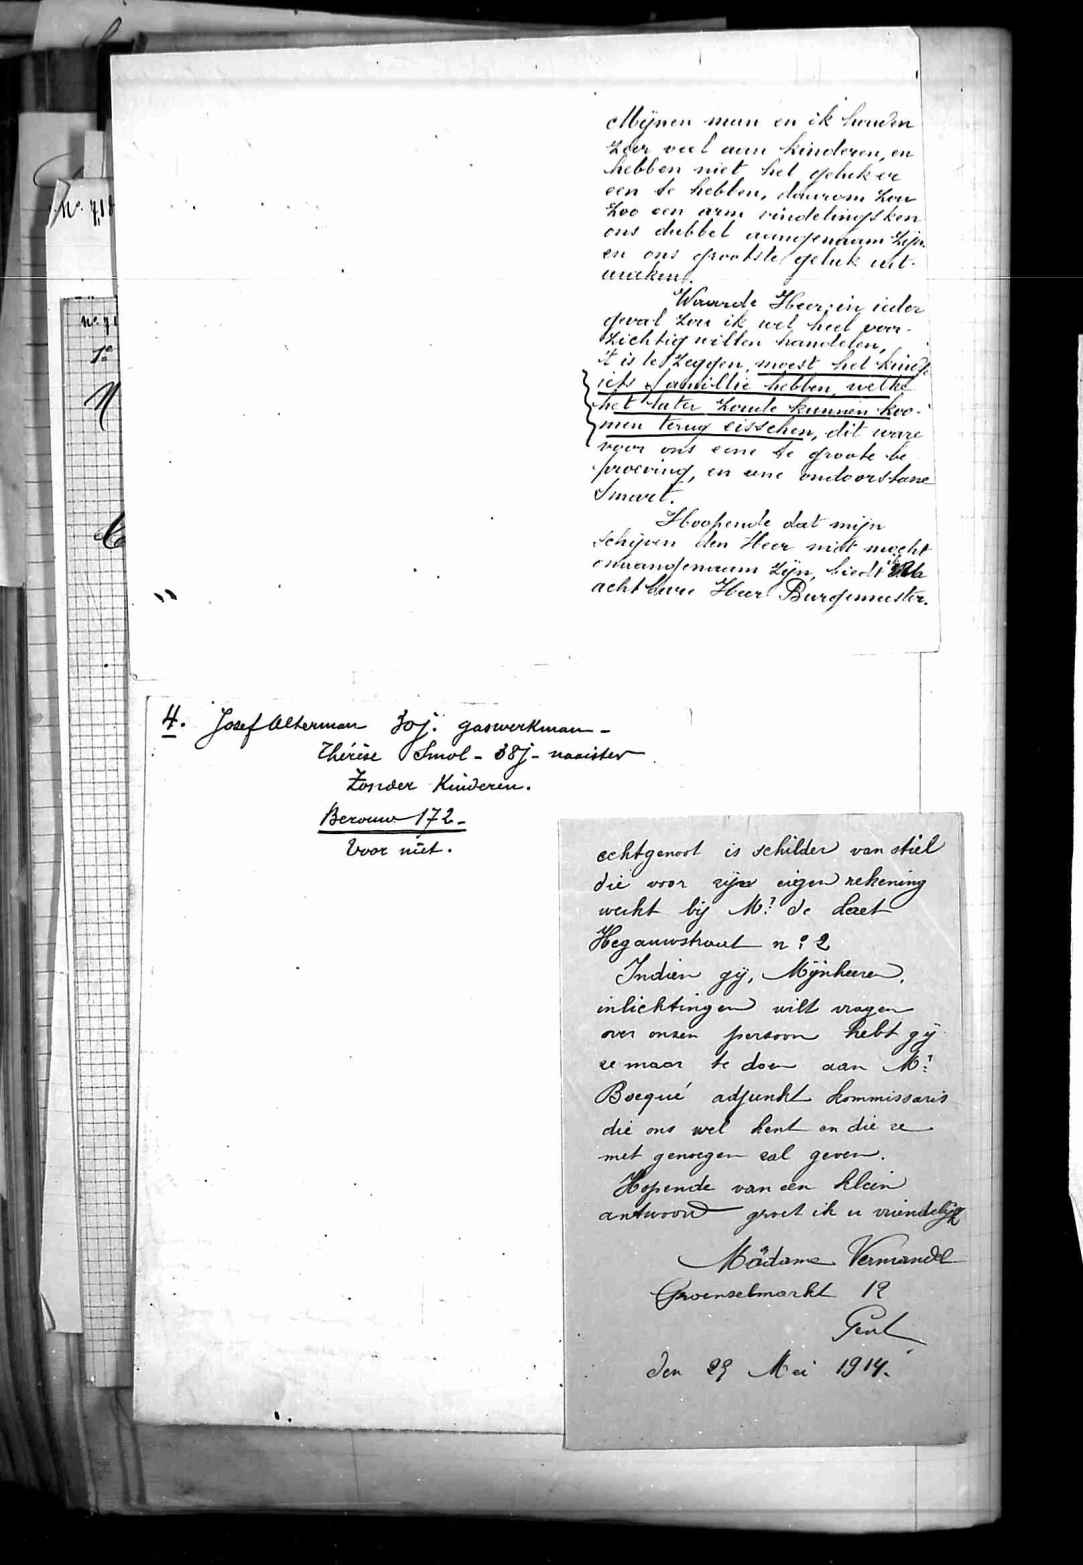 Mijnen man en ik houden
zeer veel aan kinderen, en
hebben niet het geluk er
een te hebben, daarom zou
zoo een arm vindelingsken
ons dubbel aangenaam zijn
en ons grootste geluk uit-
maken.
Waarde Heer, in ieder
geval zou ik wel heel voor-
zichtig willen handelen,
't is te zeggen, moest het kindje
iets familie hebben, welke
het later zoude kunnen koo-
men terug eisschen, dit ware
voor ons eene te groote be
proeving, en eene ondoorstane
smart.
Hoopende dat mijn
schijven den Heer niet mocht
onaangenaam zijn, biedt
achtbare Heer Burgemeester.
4. Jozef Alterman 30j. gaswerkman -
Thérèse Smol - 38j - naaister
Zonder Kinderen.
Berouw 172 -
Voor niet.
echtgenoot is schilder van stiel
die voor zijn eigen rekening
werkt bij Mr de Laet
Hegauwstraat n° 2
Indien gij, Mijnheere,
inlichtingen wilt vragen
over onzen persoon hebt gij
ze maar te doen aan Mr
Bocqué adjunkt kommissaris
die ons wel kent en die ze
met genoegen zal geven.
Hopende van een klein
antwoord groet ik u vriendelijk
Madame Vermandel
Groenselmarkt 12
Gent
den 29 Mei 1914.